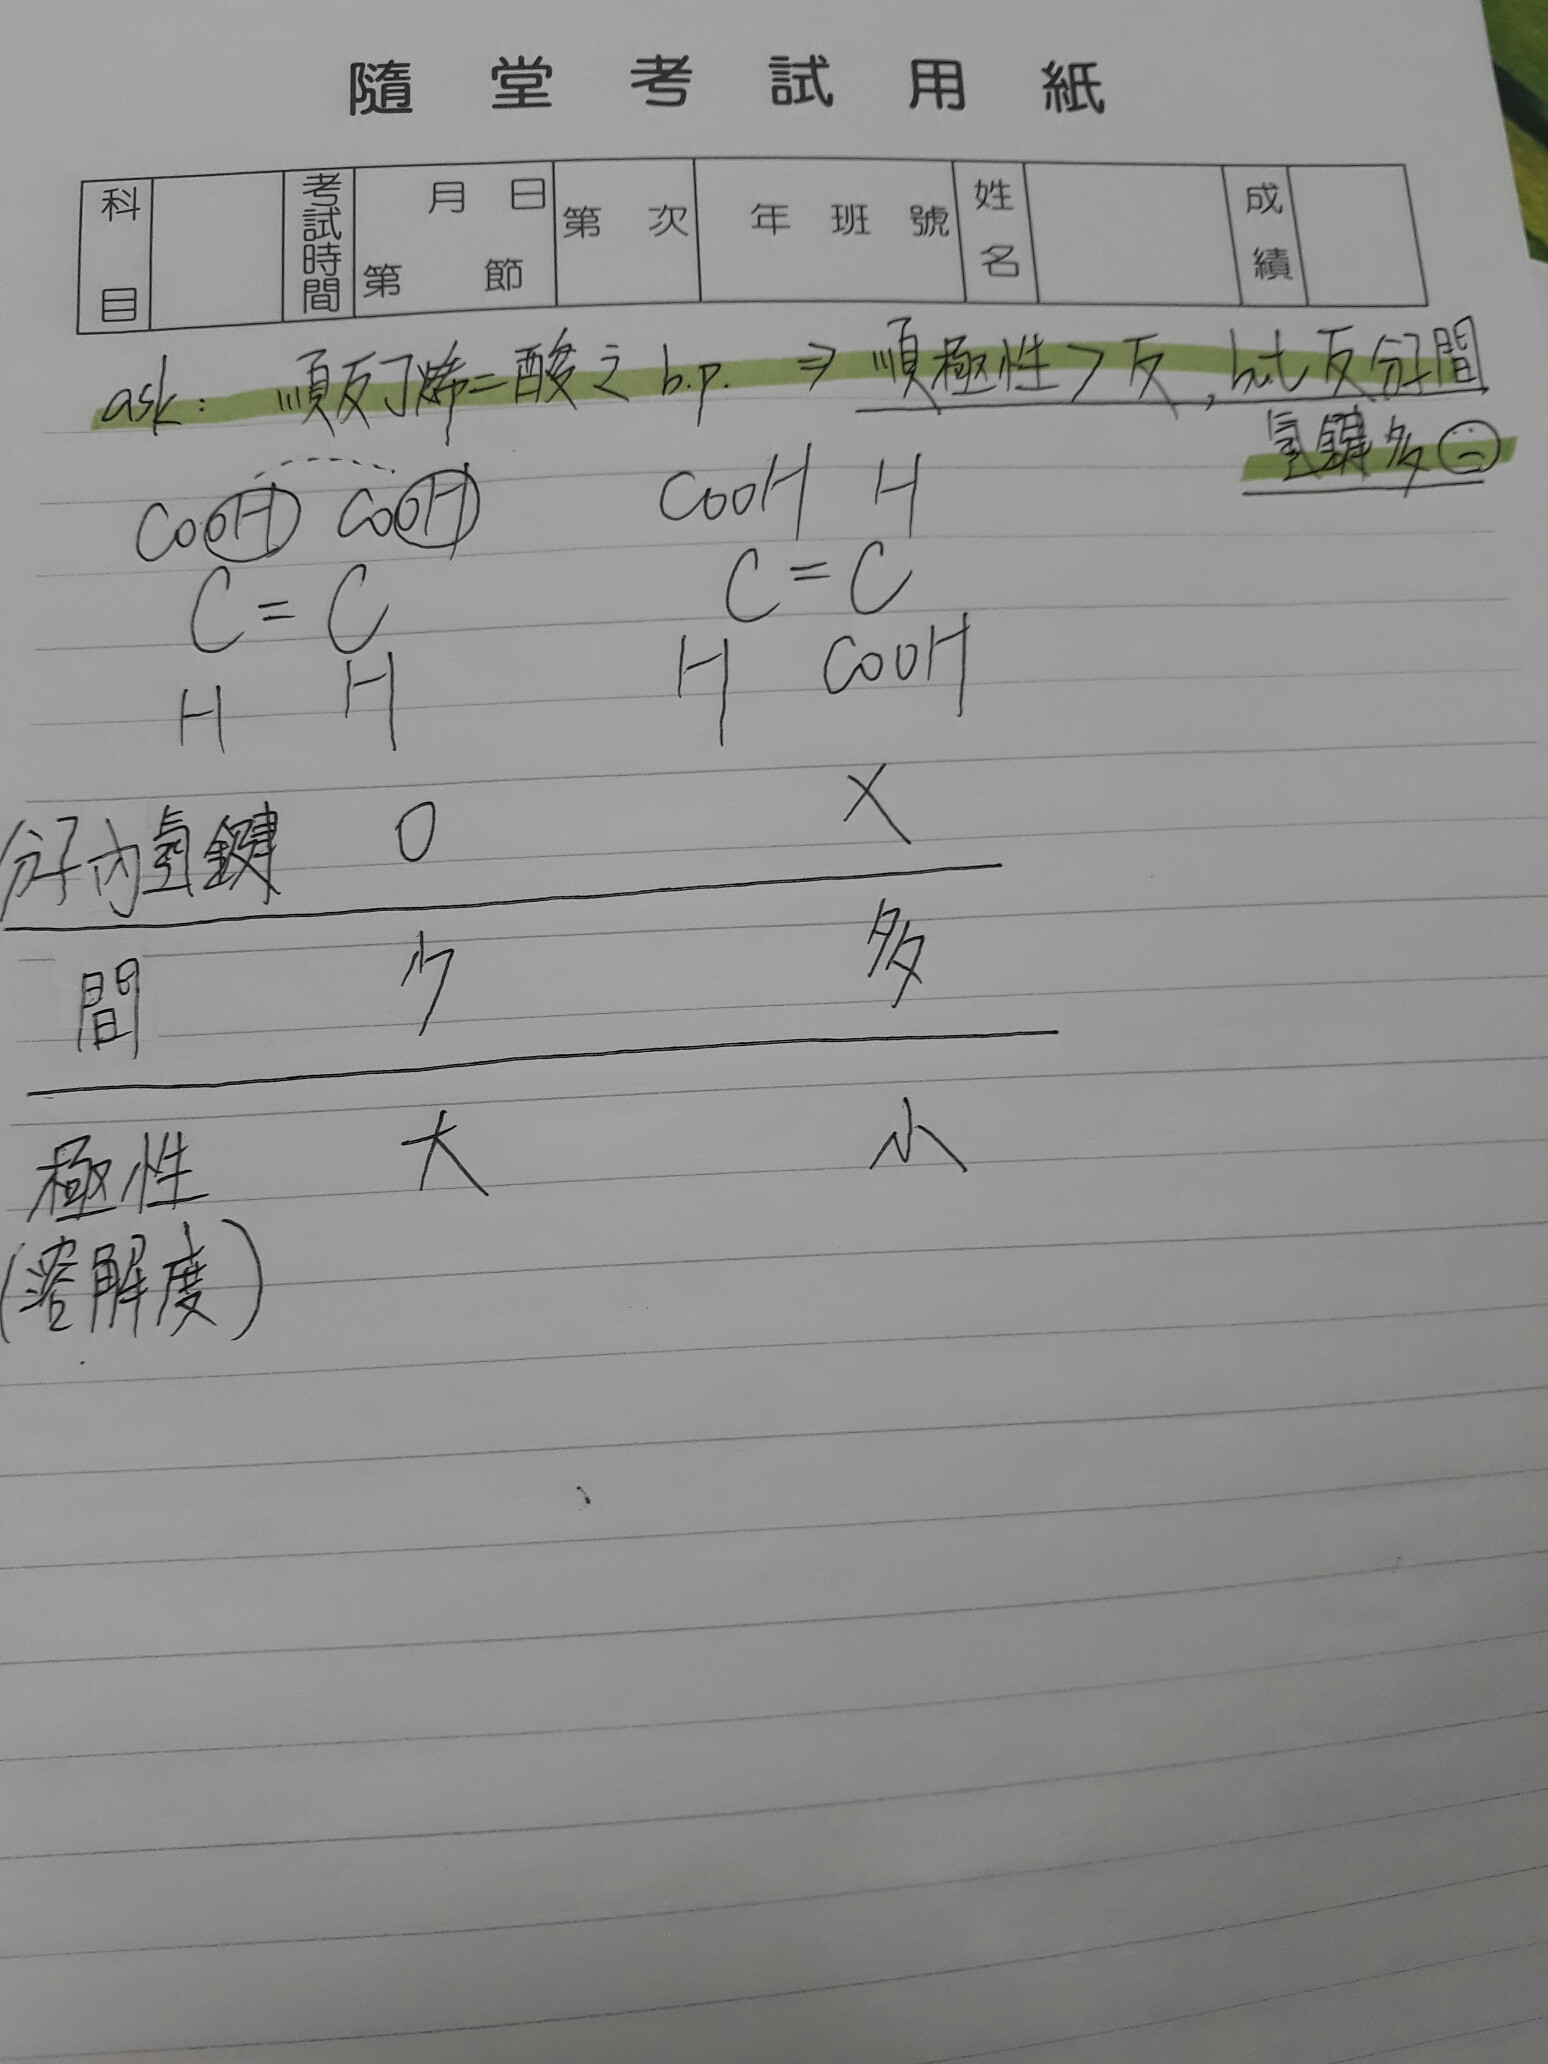 隨堂考試用紙
科目 考試時間 月 日 第 節 第 次 年 班 號 姓名 成績
ask: 順反丁烯二酸之 b.p. ⇒ 順極性 > 反, but 反分子間
氫鍵多
COOH COOH COOH H
C = C C = C
H H H COOH
分子內氫鍵 O X
間 少 多
極性 大 小
(溶解度)